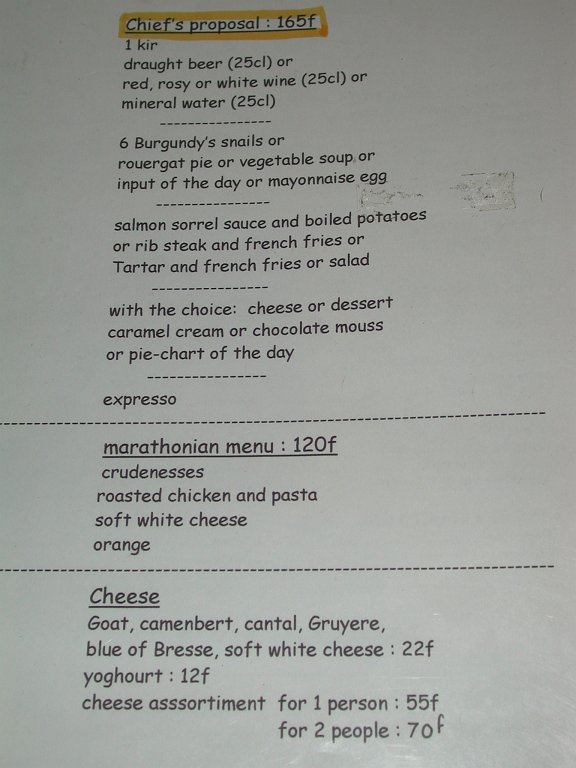 Chief's proposal : 165f
1 kir
draught beer (25cl) or
red, rosy or white wine (25cl) or
mineral water (25cl)
----------------
6 Burgundy's snails or
rouergat pie or vegetable soup or
input of the day or mayonnaise egg
----------------
salmon sorrel sauce and boiled potatoes
or rib steak and french fries or
Tartar and french fries or salad
----------------
with the choice: cheese or dessert
caramel cream or chocolate mouss
or pie-chart of the day
----------------
expresso
marathonian menu : 120f
crudenesses
roasted chicken and pasta
soft white cheese
orange
Cheese
Goat, camenbert, cantal, Gruyere,
blue of Bresse, soft white cheese : 22f
yoghourt : 12f
cheese asssortiment for 1 person : 55f
for 2 people : 70f